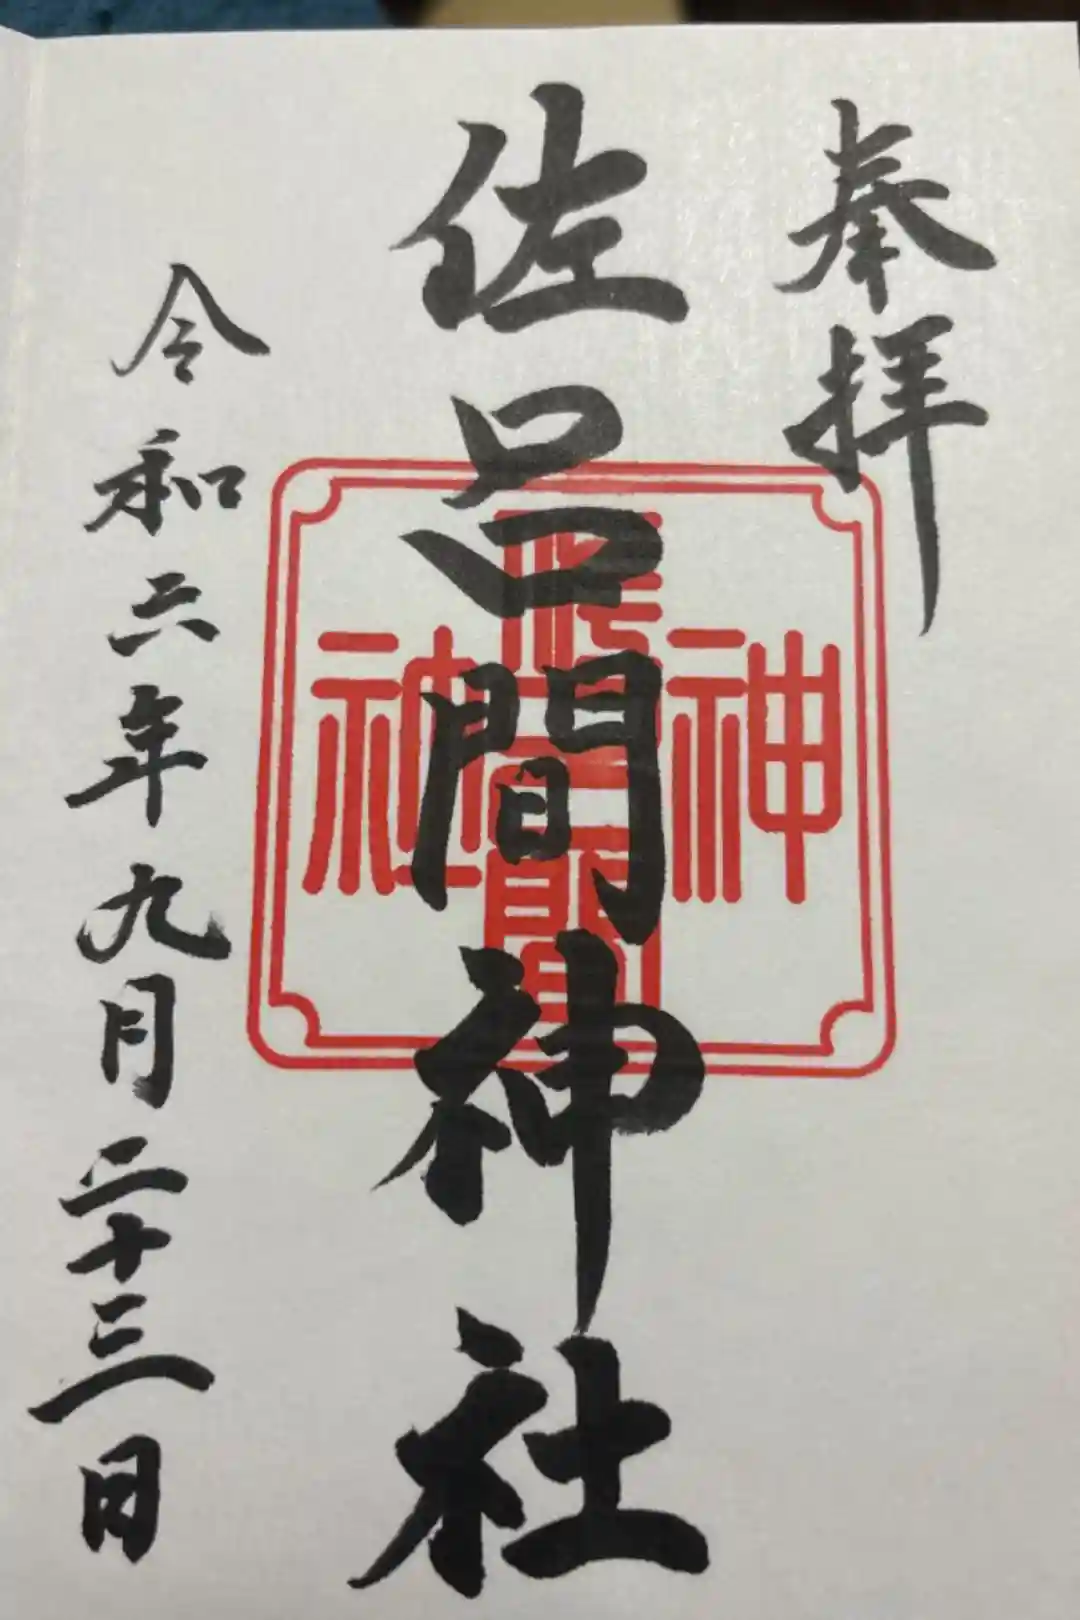 奉拝
佐呂間神社
令和六年九月二十三日